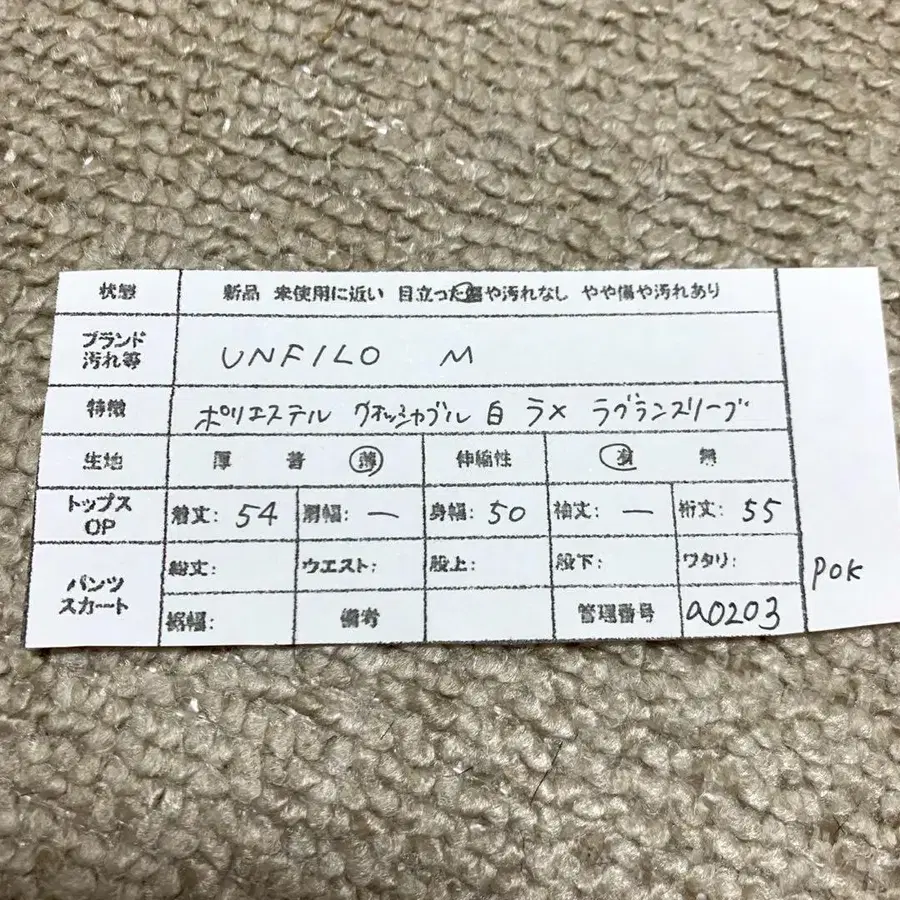 状態 新品 未使用に近い 目立った傷や汚れなし やや傷や汚れあり
ブランド
汚れ等
UNFILO M
特徴 ポリエステル ウォッシャブル 白 ラメ ラグランスリーブ
生地 厚 普 薄 伸縮性 有 無
トップス
OP
着丈: 54 肩幅: ー 身幅: 50 袖丈: ー 裄丈: 55
パンツ
スカート
総丈: ウエスト: 股上: 股下: ワタリ:
裾幅: 備考 管理番号 a0203
POK